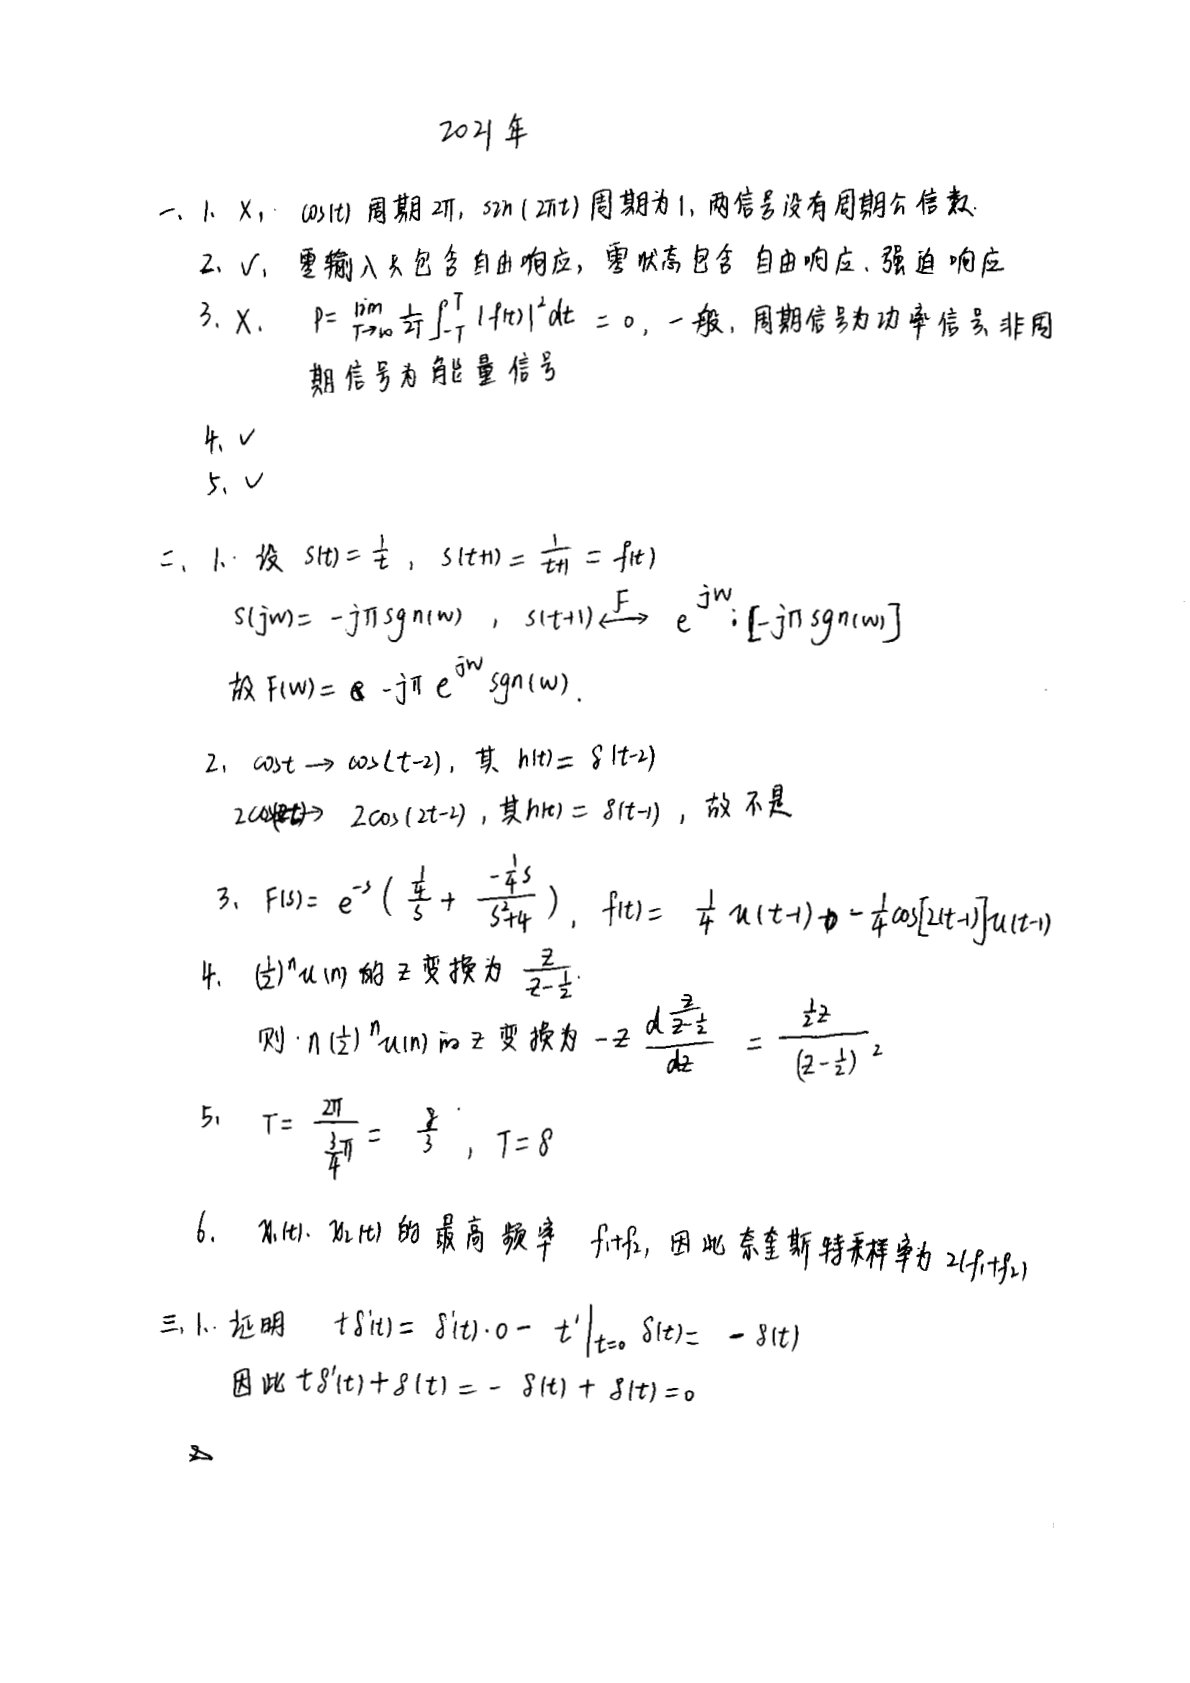 2021年
一、1. ×, cos(t) 周期 2π, sin(2πt) 周期为 1, 两信号没有周期公倍数.
2. ✓, 零输入只包含自由响应, 零状态包含 自由响应、强迫响应
3. ×. P= lim_{T→∞} 1/2T ∫_{-T}^{T} |f(t)|² dt = 0, 一般, 周期信号为功率信号, 非周
期信号为能量信号
4. ✓
5. ✓
二、1. 设 S(t)= 1/t , S(t+1) = 1/(t+1) = f(t)
S(jw)= -jπ sgn(w) , S(t+1) ←F→ e^{jw}·[-jπ sgn(w)]
故 F(w)= -jπ e^{jw} sgn(w).
2. cost → cos(t-2), 其 h(t)= δ(t-2)
2cos(2t)→ 2cos(2t-2), 其h(t)= δ(t-1) , 故不是
3. F(s)= e^{-s} ( (1/4)/s + (-1/4 s)/(s²+4) ), f(t)= 1/4 u(t-1) - 1/4 cos[2(t-1)]u(t-1)
4. (1/2)^n u(n) 的 z 变换为 z/(z-1/2).
则 n(1/2)^n u(n) 的 z 变换为 -z d(z/(z-1/2))/dz = (1/2 z)/(z-1/2)²
5. T= 2π/(3/4 π) = 8/3 , T=8
6. x₁(t)·x₂(t) 的最高频率 f₁+f₂, 因此奈奎斯特采样率为 2(f₁+f₂)
三、1. 证明 tδ'(t)= δ'(t)·0 - t'|_{t=0} δ(t)= - δ(t)
因此 tδ'(t)+δ(t) = - δ(t) + δ(t)=0